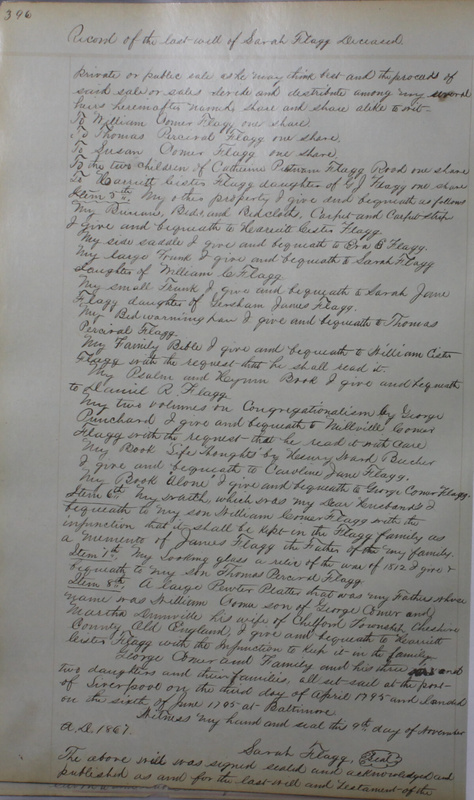 396
Record of the last will of Sarah Flagg Deceased
private or public sale as he may think best and the proceed of
said sale or sales devide and distribute among my several
heirs hereinafter named, share and share alike to wit.
To William Comer Flagg one share
To Thomas Percival Flagg one share
To Susan Comer Flagg one share
To the two children of Catherine Putnam Flagg Rood one share
To Harriett Cester Flagg daughter of G J Flagg one share
Item 5th. My other property I give and bequeath as follows
My Bureau, Beds and Bedcloths, Carpet and Carpet strip
I give and bequeath to Harriett Cester Flagg.
My side saddle I give and bequeath to Eva B Flagg.
My large Trunk I give and bequeath to Sarah Flagg
daughter of William C Flagg
My small Trunk I give and bequeath to Sarah Jane
Flagg daughter of Gersham James Flagg.
My Bed warming pan I give and bequeath to Thomas
Percival Flagg.
My Family Bible I give and bequeath to William Cester
Flagg with the request that he shall read it.
My Psalm and Hymn Book I give and bequeath
to Daniel R. Flagg
My two volumes on Congregationalism by George
Punchard I give and bequeath to Wellville Comer
Flagg with the request that he read it with care
My Book Life Thought by Henry Ward Beecher
I give and bequeath to Caroline Jane Flagg.
My Book Alone I give and bequeath to George Comer Flagg.
Item 6th. My watch, which was my dear husbands I
bequeath to my son William Comer Flagg with the
injunction that it shall be kept in the Flagg family as
a memento of James Flagg the Father of the my family.
Item 7th. My Looking glass a relic of the war of 1812 I give &
bequeath to my son Thomas Percival Flagg.
Item 8th. A large Pewter Platter that was my Father's whose
name was William Comer son of George Comer and
Martha his wife of Township, Cheshire
County Old England, I give and bequeath to Harriett
Cester Flagg with the injunction to keep it in the family
George Comer and Family and his three and
two daughters and their families, all set sail at the port
of Liverpool on the third day of April 1795 and landed
on the sixth of June 1795 at Baltimore
Witness my hand and seal this 9th day of November
A.D. 1867.
Sarah Flagg, Seal
The above will was signed sealed and acknowledged and
published as and for the last will and testament of the